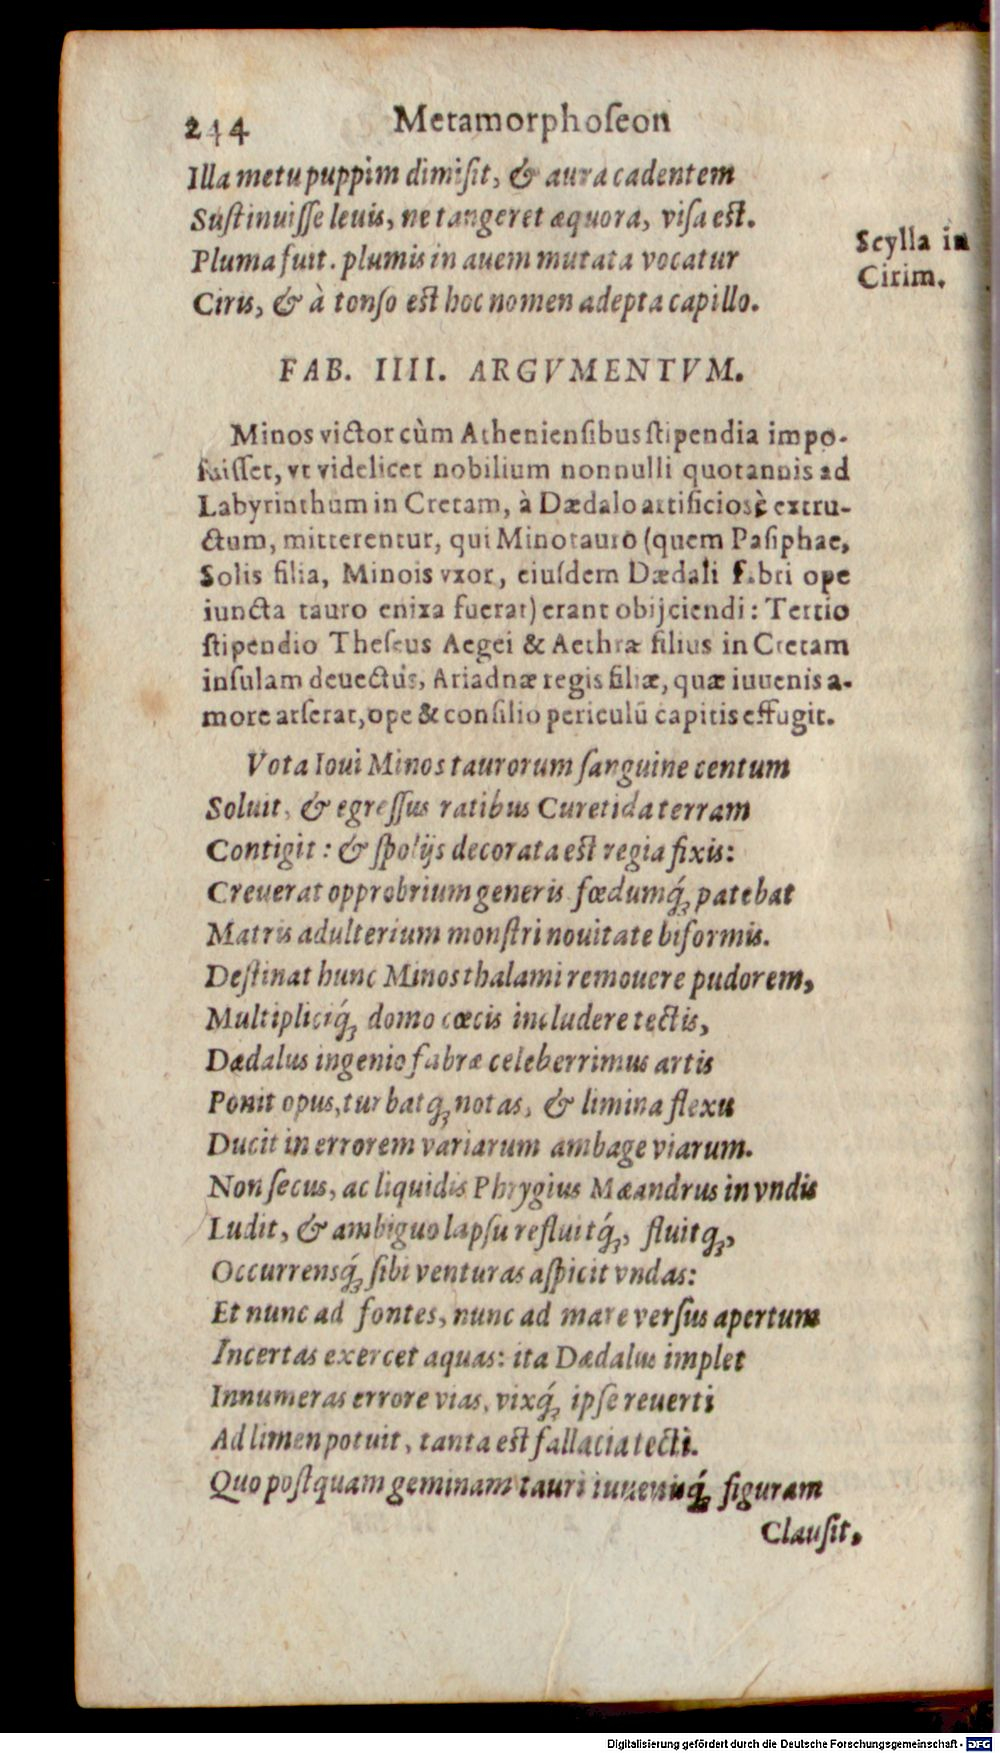 244 Metamorphoſeon
Illa metu puppim dimiſit, & aura cadentem
Suſtinuiſſe leuis, ne tangeret æquora, viſa eſt.
Pluma fuit. plumis in auem mutata vocatur
Ciris, & à tonſo eſt hoc nomen adepta capillo.
Scylla in
Cirim.
FAB. IIII. ARGVMENTVM.
Minos victor cùm Athenienſibus ſtipendia impo-
ſuiſſet, vt videlicet nobilium nonnulli quotannis ad
Labyrinthum in Cretam, à Dædalo artificiosè extru-
ctum, mitterentur, qui Minotauro (quem Paſiphae,
Solis filia, Minois vxor, eiuſdem Dædali fabri ope
iuncta tauro enixa fuerat) erant obijciendi: Tertio
ſtipendio Theſeus Aegei & Aethræ filius in Cretam
inſulam deuectus, Ariadnæ regis filiæ, quæ iuuenis a-
more arſerat, ope & conſilio periculū capitis effugit.
Vota Ioui Minos taurorum ſanguine centum
Soluit, & egreſſus ratibus Curetida terram
Contigit: & ſpolijs decorata eſt regia fixis:
Creuerat opprobrium generis fœdumq́ꝫ patebat
Matris adulterium monſtri nouitate biformis.
Deſtinat hunc Minos thalami remouere pudorem,
Multipliciq́ꝫ domo cæcis includere tectis,
Dædalus ingenio fabræ celeberrimus artis
Ponit opus, turbatqꝫ notas, & limina flexu
Ducit in errorem variarum ambage viarum.
Non ſecus, ac liquidis Phrygius Mæandrus in vndis
Ludit, & ambiguo lapſu refluitq́ꝫ, fluitqꝫ,
Occurrensq́ꝫ ſibi venturas aſpicit vndas:
Et nunc ad fontes, nunc ad mare verſus apertum
Incertas exercet aquas: ita Dædalus implet
Innumeras errore vias, vixq́ꝫ ipſe reuerti
Ad limen potuit, tanta eſt fallacia tecti.
Quo poſtquam geminam tauri iuuenisq́ꝫ figuram
Clauſit,
Digitalisierung gefördert durch die Deutsche Forschungsgemeinschaft - DFG